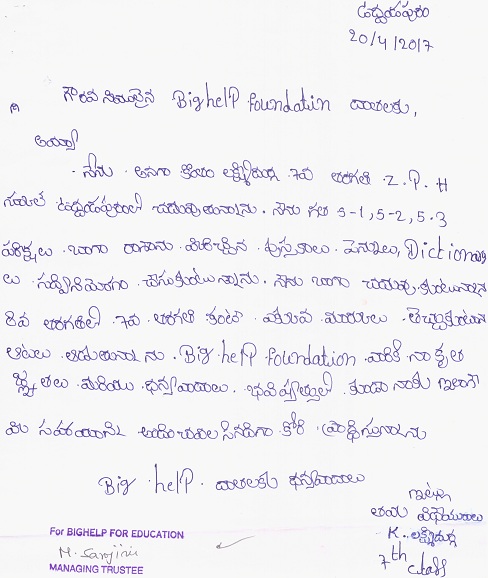 ఉద్దయపురం
20/4/2017
గౌరవనీయులైన Bighelp foundation వారలకు,
అయ్యా
నేను అనగా కొయిం లక్ష్మీదుర్గ 7వ తరగతి Z.P.H
చదువుతున్నాను. నేను గత 5-1, 5-2, 5.3
పరీక్షలు బాగా రాసాను పుస్తకాలు పెన్నులు, Dictionary
లు సద్వినియోగం చేసుకుంటున్నాను. నేను బాగా చదువుకుంటున్నాను
8వ తరగతిలో 7వ తరగతి కంటే ఎక్కువ మార్కులు తెచ్చుకుంటాను
ఆటలు ఆడుతున్నాను. Big help foundation వారికి నా కృత
జ్ఞతలు మరియు ధన్యవాదాలు. భవిష్యత్తులో కూడా నాకు ఇలాగే
మీ సహాయాన్ని కోరి ప్రార్థిస్తున్నాను
Big help వారలకు ధన్యవాదాలు
ఇట్లు
తమ విధేయురాలు
K. లక్ష్మీదుర్గ
7th class
For BIGHELP FOR EDUCATION
MANAGING TRUSTEE